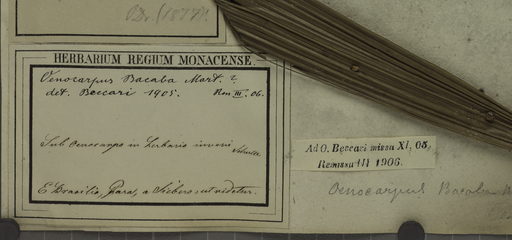 (1877).
HERBARIUM REGIUM MONACENSE.
Oenocarpus Bacaba Mart. ?
det. Beccari 1905. Rem III. 06.
Sub Oenocarpo in herbario inveni
E Brasilia, Para, a Siebero ut videtur.
Ad O. Beccari missa XI, 05,
Remissa III 1906.
Oenocarpus Bacaba